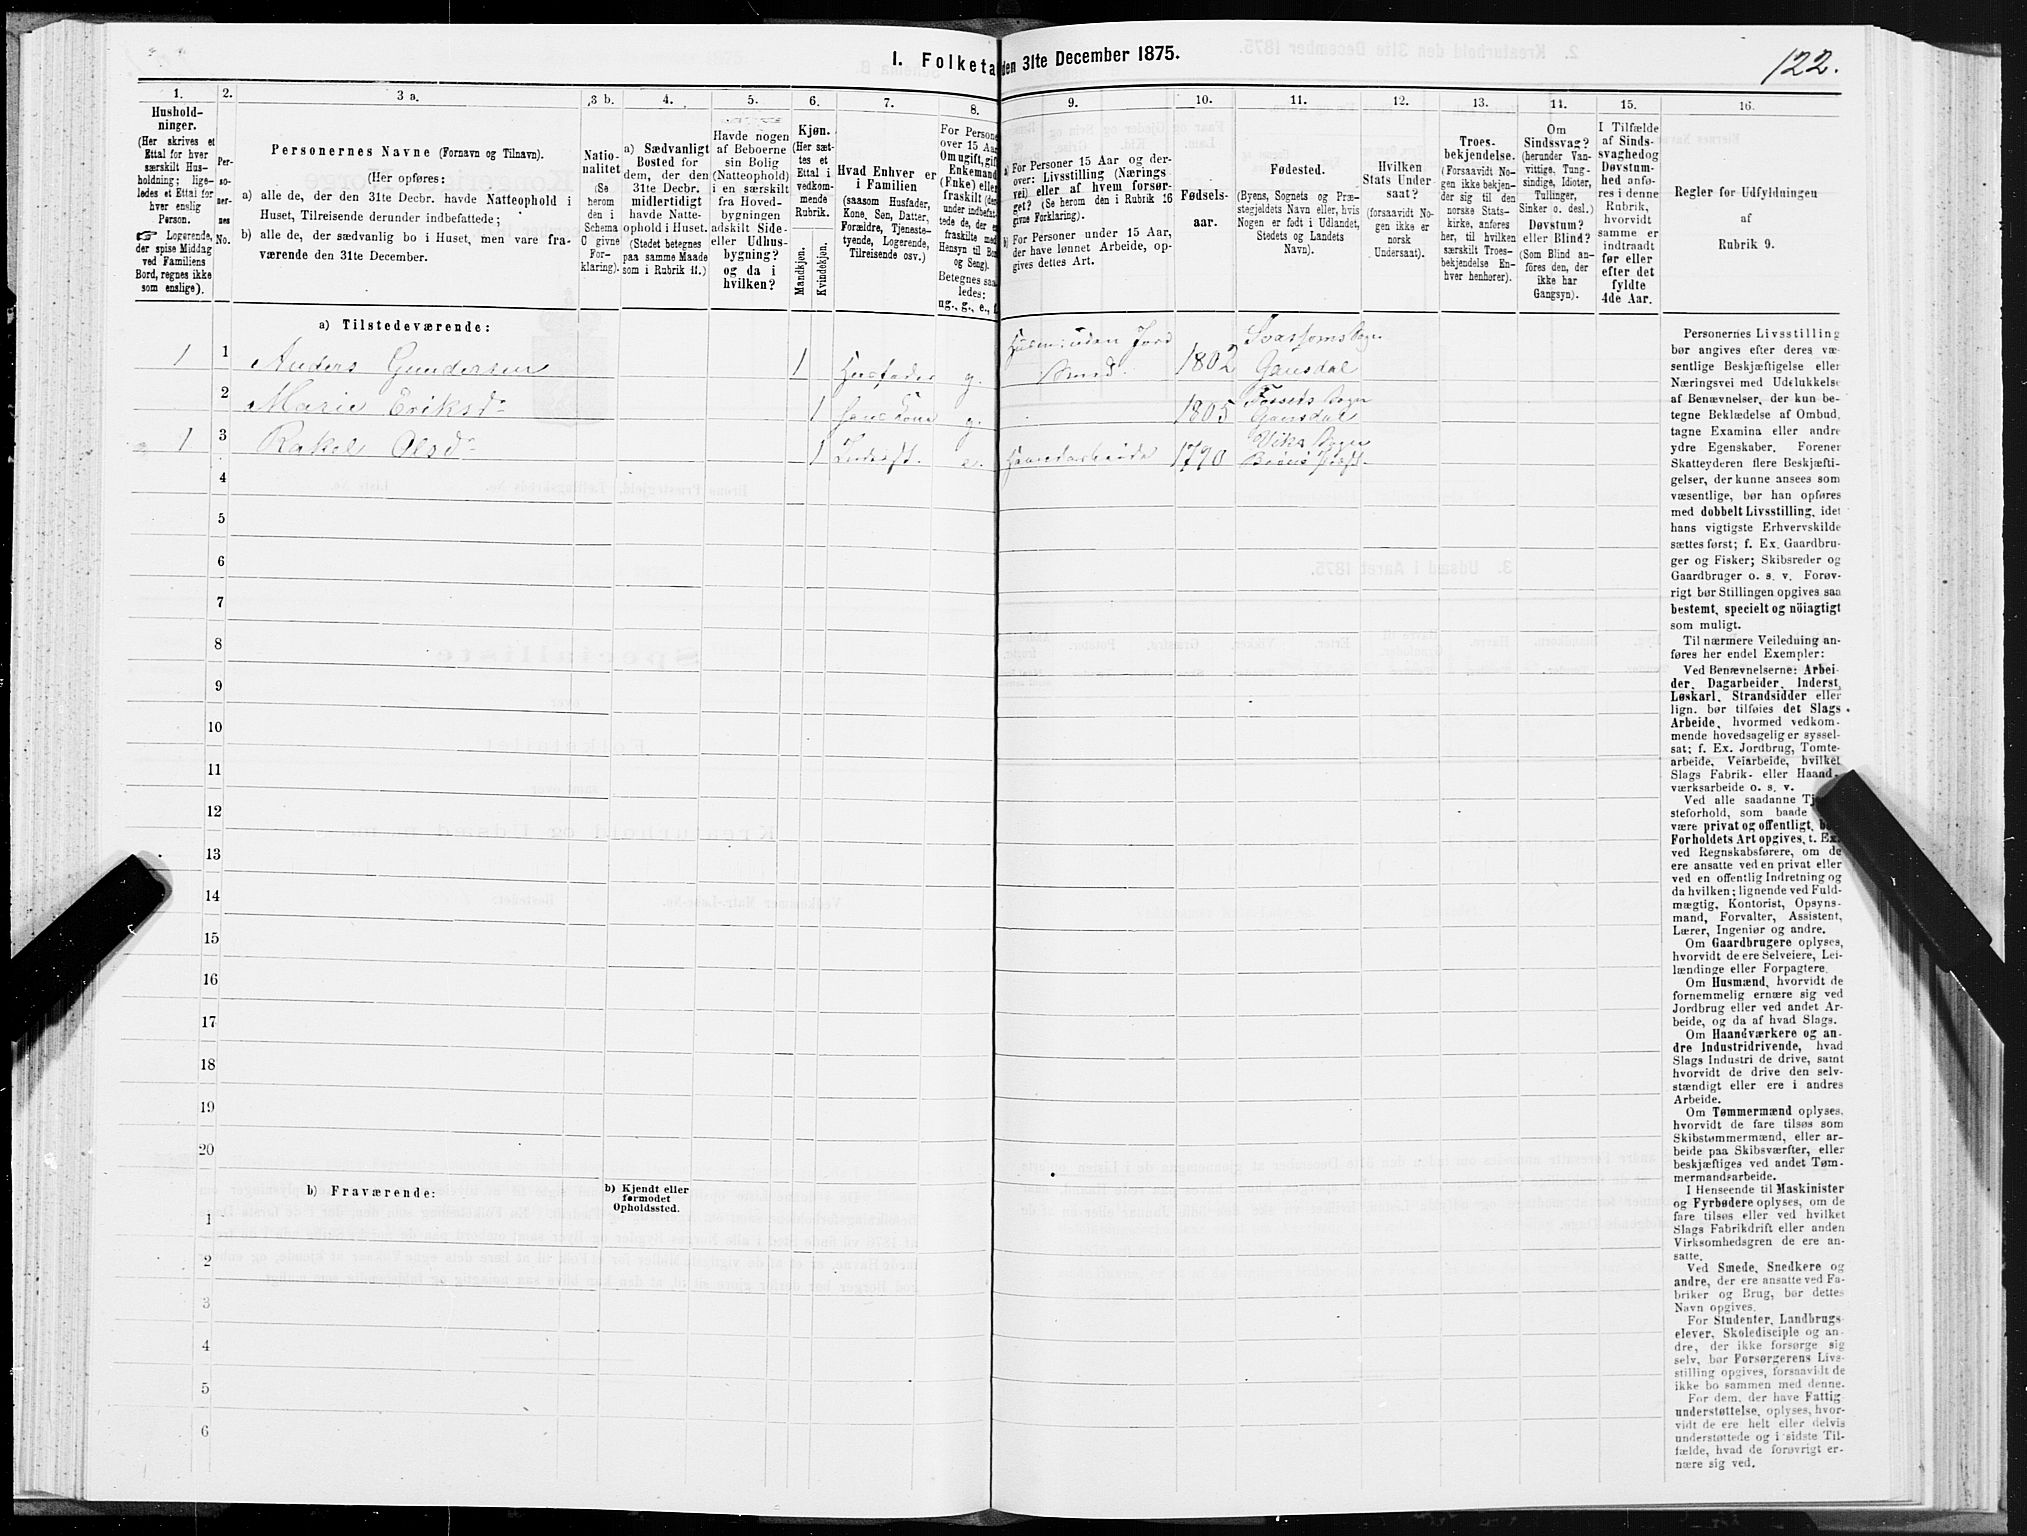 I. Folketa den 31te December 1875.
122.
1.
Hushold-
ninger.
(Her skrives et
Ettal for hver
særskilt Hus-
holdning; lige-
ledes et Ettal for
hver enslig
Person.
☞ Logerende,
der spise Middag
ved Familiens
Bord, regnes ikke
som enslige).
2.
Per-
so-
ner-
nes
No.
3 a.
Personernes Navne (Fornavn og Tilnavn).
(Her opføres:
a) alle de, der den 31te Decbr. havde Natteophold i
Huset, Tilreisende derunder indbefattede;
b) alle de, der sædvanlig bo i Huset, men vare fra-
værende den 31te December.
3 b.
Natio-
nalitet
(Se
herom
den i
Schema
C givne
For-
klaring).
4.
a) Sædvanligt
Bosted for
dem, der den
31te Decbr.
midlertidigt
havde Natte-
ophold i Huset.
(Stedet betegnes
paa samme Maade
som i Rubrik 11.)
5.
Havde nogen
af Beboerne
sin Bolig
(Natteophold)
i en særskilt
fra Hoved-
bygningen
adskilt Side-
eller Udhus-
bygning?
og da i
hvilken?
6.
Kjøn.
(Her sæt-
tes et
Ettal i
vedkom-
mende
Rubrik.
Mandkjøn.
Kvindekjøn.
7.
Hvad Enhver er
i Familien
(saasom Husfader,
Kone, Søn, Datter,
Forældre, Tjeneste-
tyende, Logerende,
Tilreisende osv.)
8.
For Persone
over 15 Aar
Om ugift, gift
Enkemand
(Enke) eller
fraskilt (der
under indbefat-
tede de, der e
fraskilte med
Hensyn til Bo
og Seng).
Betegnes saa
ledes:
ug., g., e., f.
9.
a) For Personer 15 Aar og der-
over: Livsstilling (Nærings
vei) eller af hvem forsør-
get? (Se herom den i Rubrik 16
givne Forklaring).
b) For Personer under 15 Aar,
der have lønnet Arbeide, op-
gives dettes Art.
10.
Fødsels-
aar.
11.
Fødested.
(Byens, Sognets og Præ-
stegjeldets Navn eller, hvis
Nogen er født i Udlandet,
Stedets og Landets
Navn).
12.
Hvilken
Stats Under
saat?
(forsaavidt No-
gen ikke er
norsk
Undersaat).
13.
Troes-
bekjendelse.
(Forsaavidt No-
gen ikke bekjen-
der sig til den
norske Stats-
kirke, anføres
her, til hvilken
særskilt Troes-
bekjendelse En-
hver henhører).
14.
Om
Sindssvag?
(herunder Van-
vittige, Tung-
sindige, Idioter,
Tullinger,
Sinker o. desl.)
Døvstum?
eller Blind?
(Som Blind an-
føres den, der
ikke har
Gangsyn).
15.
I Tilfælde
af Sinds-
svaghed og
Døvstum-
hed anfø-
res i denne
Rubrik,
hvorvidt
samme er
indtraadt
før eller
efter det
fyldte
4de Aar.
16.
Regler for Udfyldningen
af
Rubrik 9.
a) Tilstedeværende:
1 1 Anders Gundersen 1 Husfader g. Husm: uden Jord Smed. 1802 Svatsoms Sogn Gausdal
2 Marie Eriksd. 1 Hans Kone g. 1805 Gausdal
1 3 Rakel Olsd. 1 Inderst. e. Haandarbeide 1790
4
5
6
7
8
9
10
11
12
13
14
15
16
17
18
19
20
b) Fraværende:
b) Kjendt eller
formodet
Opholdssted.
1
2
3
4
5
6
Personernes Livsstilling
bør angives efter deres væ-
sentlige Beskjæftigelse eller
Næringsvei med Udelukkelse
af Benævnelser, der kun be-
tegne Beklædelse af Ombud,
tagne Examina eller andre
ydre Egenskaber. Forener
Skatteyderen flere Beskjæfti-
gelser, der kunne ansees som
væsentlige, bør han opføres
med dobbelt Livsstilling, idet
hans vigtigste Erhvervskilde
sættes først; f. Ex. Gaardbru-
ger og Fisker; Skibsreder og
Gaardbruger o. s. v. Forøv-
rigt bør Stillingen opgives saa
bestemt, specielt og nöiagtigt
som muligt.
Til nærmere Veiledning an-
føres her endel Exempler:
Ved Benævnelserne: Arbei-
der, Dagarbeider, Inderst,
Løskarl, Strandsidder eller
lign. bør tilføies det Slags
Arbeide, hvormed vedkom-
mende hovedsagelig er syssel-
sat; f. Ex. Jordbrug, Tomte-
arbeide, Veiarbeide, hvilket
Slags Fabrik- eller Haand-
værksarbeide o. s. v.
Ved alle saadanne Tj
steforhold, som baade
være privat og offentligt, bør
Forholdets Art opgives, t. Ex.
ved Regnskabsførere, om de
ere ansatte ved en privat eller
ved en offentlig Indretning og
da hvilken; lignende ved Fuld-
mægtig, Kontorist, Opsyns-
mand, Forvalter, Assistent,
Lærer, Ingeniør og andre.
Om Gaardbrugere oplyses,
hvorvidt de ere Selveiere, Lei-
lændinge eller Forpagtere.
Om Husmænd, hvorvidt de
fornemmelig ernære sig ved
Jordbrug eller ved andet Ar-
beide, og da af hvad Slags.
Om Haandværkere og an-
dre Industridrivende, hvad
Slags Industri de drive, samt
hvorvidt de drive den selv-
stændigt eller ere i andres
Arbeide.
Om Tømmermænd oplyses,
hvorvidt de fare tilsøs som
Skibstømmermænd, eller ar-
beide paa Skibsværfter, eller
beskjæftiges ved andet Tøm-
mermandsarbeide.
I Henseende til Maskinister
og Fyrbødere oplyses, om de
fare tilsøs eller ved hvilket
Slags Fabrikdrift eller anden
Virksomhedsgren de ere an-
satte.
Ved Smede, Snedkere og
andre, der ere ansatte ved Fa-
briker og Brug, bør dettes
Navn opgives.
For Studenter, Landbrugs-
elever, Skoledisciple og an-
dre, der ikke forsørge sig
selv, bør Forsørgerens Livs-
stilling opgives, forsaavidt de
ikke bo sammen med denne.
For dem, der have Fattig-
understøttelse, oplyses, hvor-
vidt de ere helt eller delvis
understøttede og i sidste Til-
fælde, hvad de forøvrigt er-
nære sig ved.